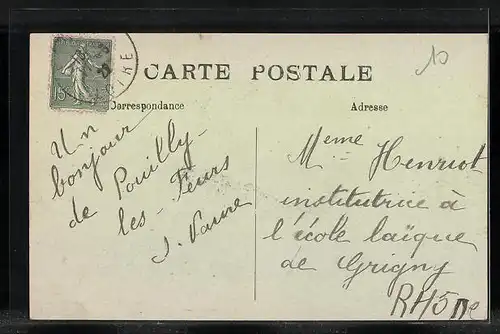 10
15
CARTE POSTALE
Correspondance
Adresse
Un
bonjour
de Pouilly-
les-Feurs
Meme Henriot
institutrice à
l'école laïque
de Grigny
RHône